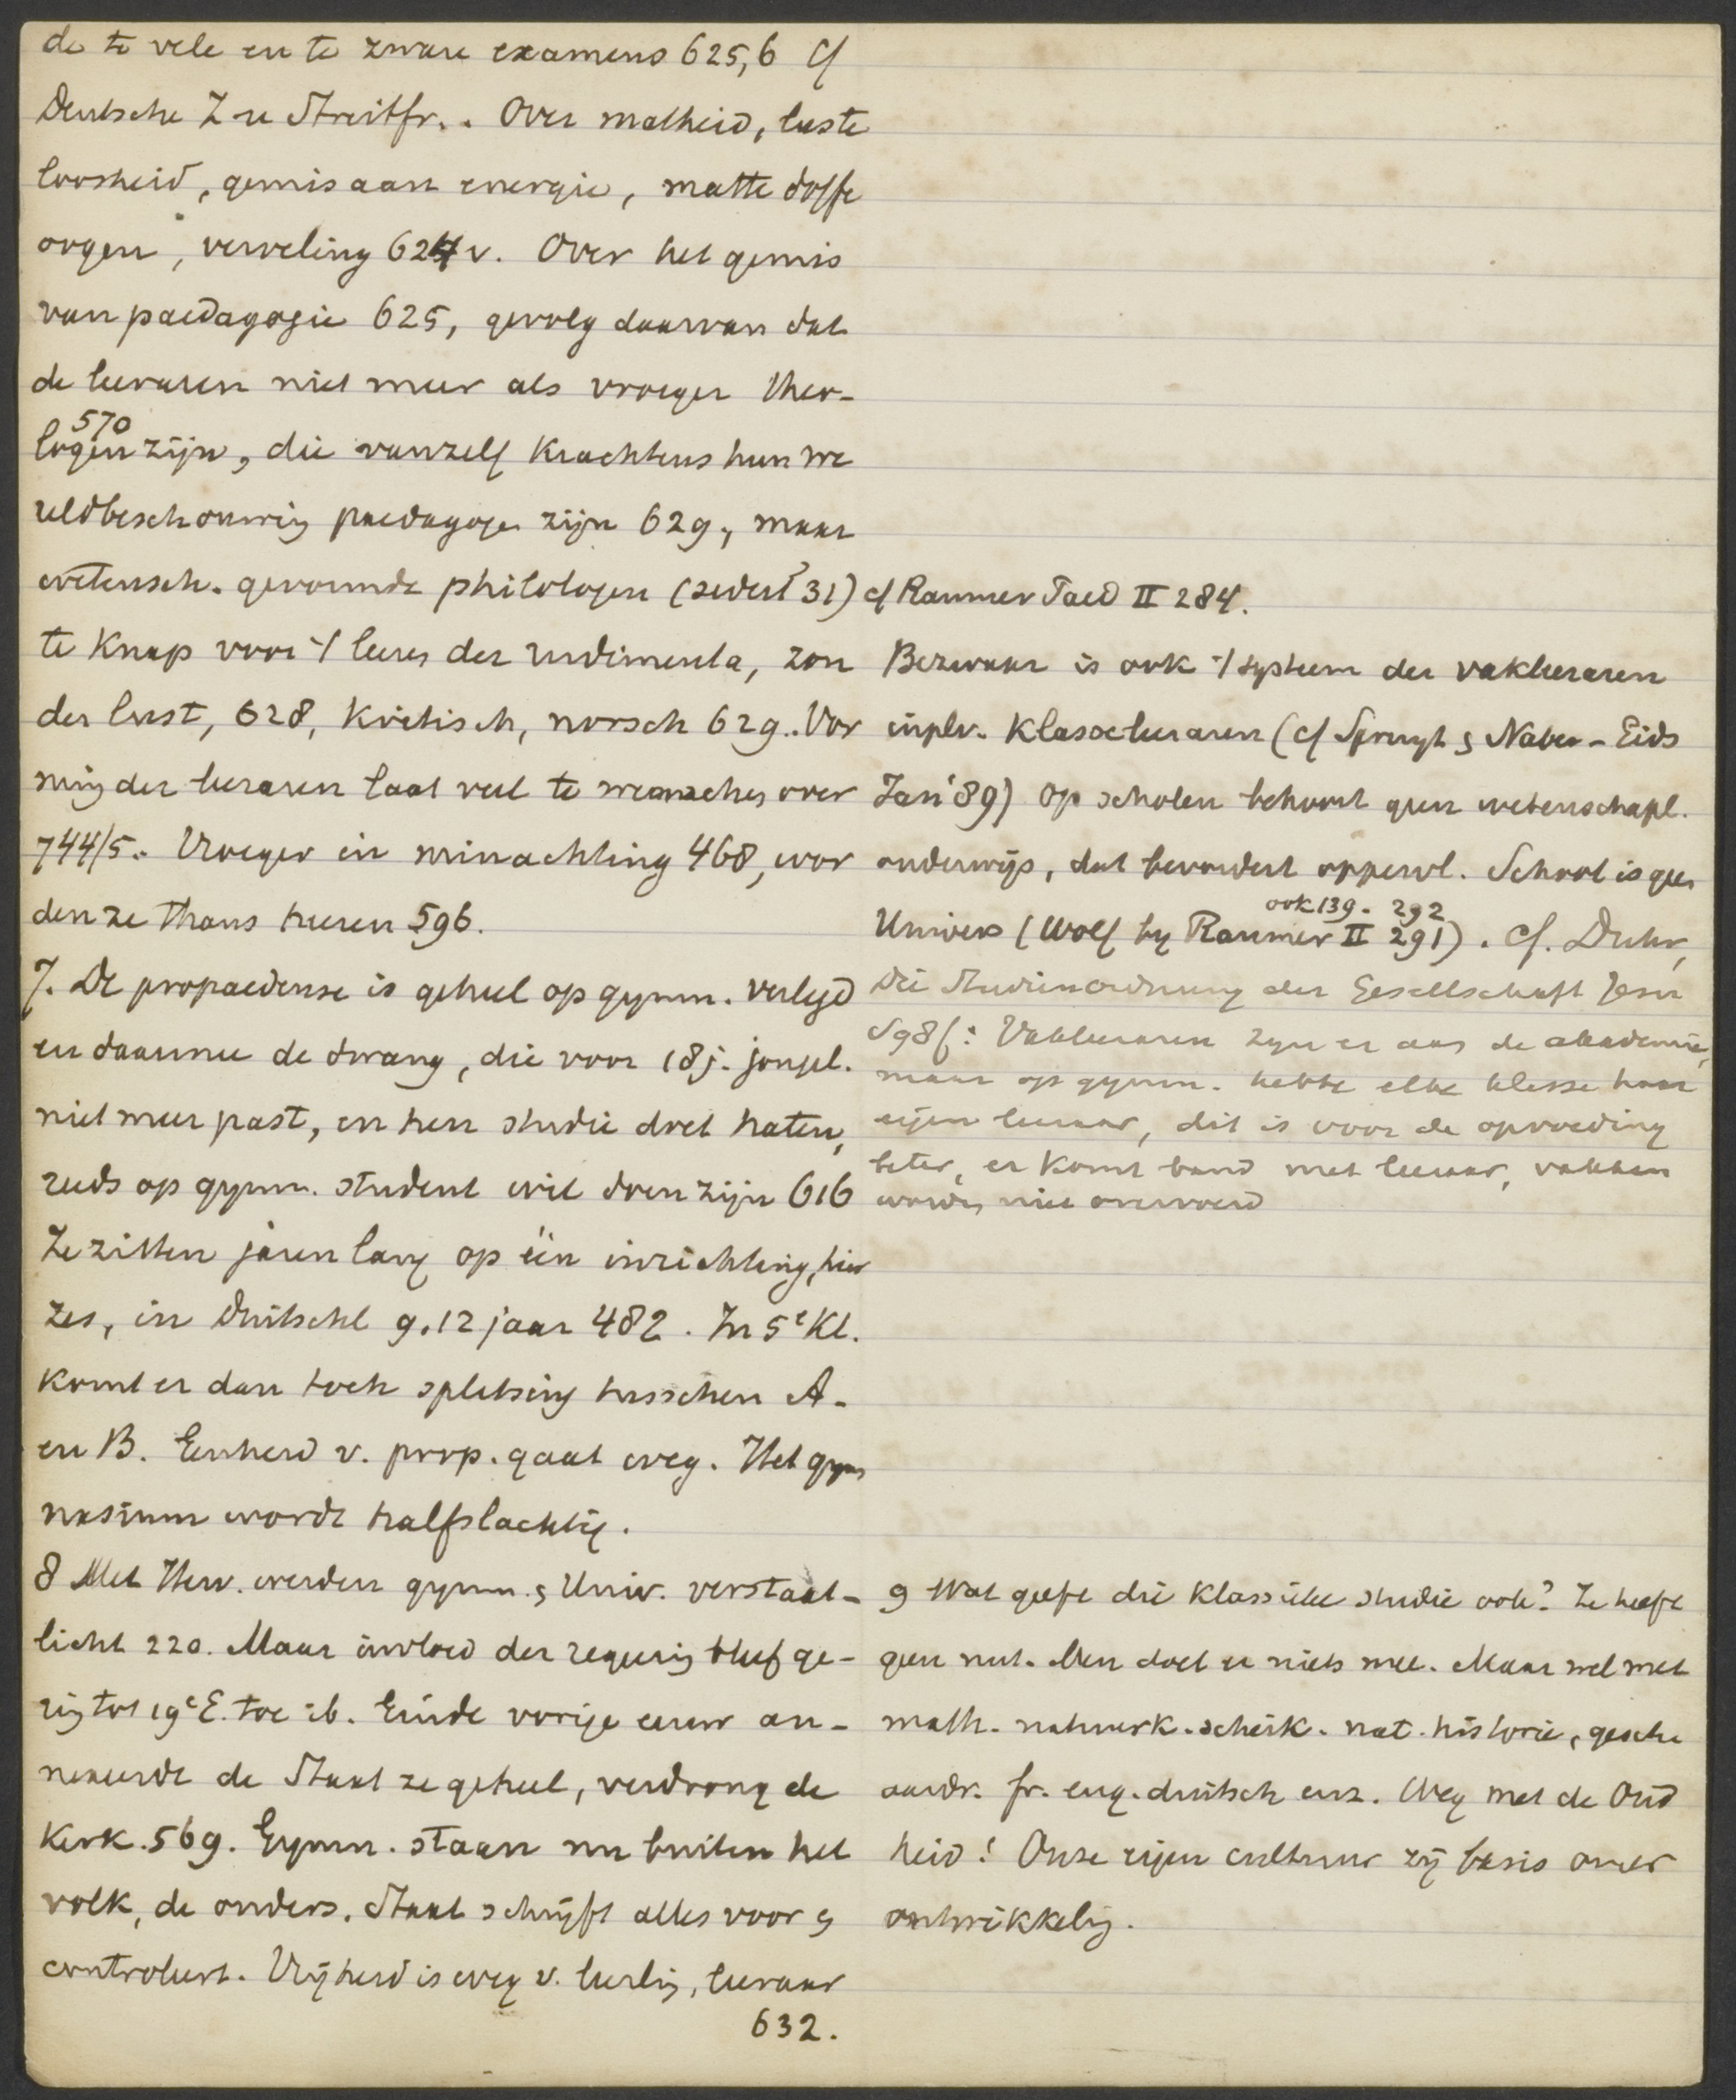 de te vele en te zware examens 625,6 cf
Deutsche Z u Streitfr.. Over matheid, luste
loosheid, gemis aan energie, matte doffe
oogen, verveling 624 v. Over het gemis
van paedagogie 625, gevolg daarvan dat
de leeraren niet meer als vroeger theo-
570
logen zijn, die vanzelf krachtens hun we
reldbeschouwing paedagogen zijn 629, maar
wetensch. gevormde philologen (sedert 31)
te knap voor 't leeren der rudimenta, zon
der lust, 628, kritisch, norsch 629. Vor
ming der leeraren laat veel te wenschen over
744/5. Vroeger in minachting 468, wor
den ze thans heeren 596.
7. De propaedeuse is geheel op gymn. verlegd
en daarmee de dwang, die voor 18 j. jongel.
niet meer past, en hen studie doet haten,
reeds op gymn. student wil doen zijn 616
Ze zitten jaren lang op één inrichting, hier
zes, in Duitschl 9.12 jaar 482. In 5e Kl.
komt er dan toch splitsing tusschen A-
en B. Eenheid v. prop. gaat weg. Het gym
nasium wordt halfslachtig.
8 Met Herv. werden gymn. & Univ. verstaat-
licht 220. Maar invloed der regering bleef ge-
ring tot 19e E. toe ib. Einde vorige eeuw an-
nexeerde de Staat ze geheel, verdrong de
Kerk. 569. Gymn. staan nu buiten het
volk, de ouders. Staat schrijft alles voor &
controleert. Vrijheid is weg v. leerling, leeraar
632.
cf Raumer Paed II 284.
Bezwaar is ook 't systeem der vakleeraren
inplv. Klasseleeraren (cf Spruyt & Naber-Gids
Jan '89) Op scholen behoort geen wetenschapl.
onderwijs, dat bevordert oppervl. School is geen
ook 139. 292
Univers (Wolf by Raumer II 291). Cf. Duhr,
Die Studienordnung der Gesellschaft Jesu
S 98 f: Vakleeraren zijn er aan de akademie,
maar op gymn. hebbe elke klasse haar
eigen leeraar, dit is voor de opvoeding
beter, er komt band met leeraar, vakken
worden niet overvoerd
9 Wat geeft die klassieke studie ook? Ze heeft
geen nut. Men doet er niets mee. Maar wel met
math. natuurk. scheik. nat. historie, gesch
aardr. fr. eng. duitsch enz. Weg met de Oud
heid! Onze eigen cultuur zij basis onzer
ontwikkeling.